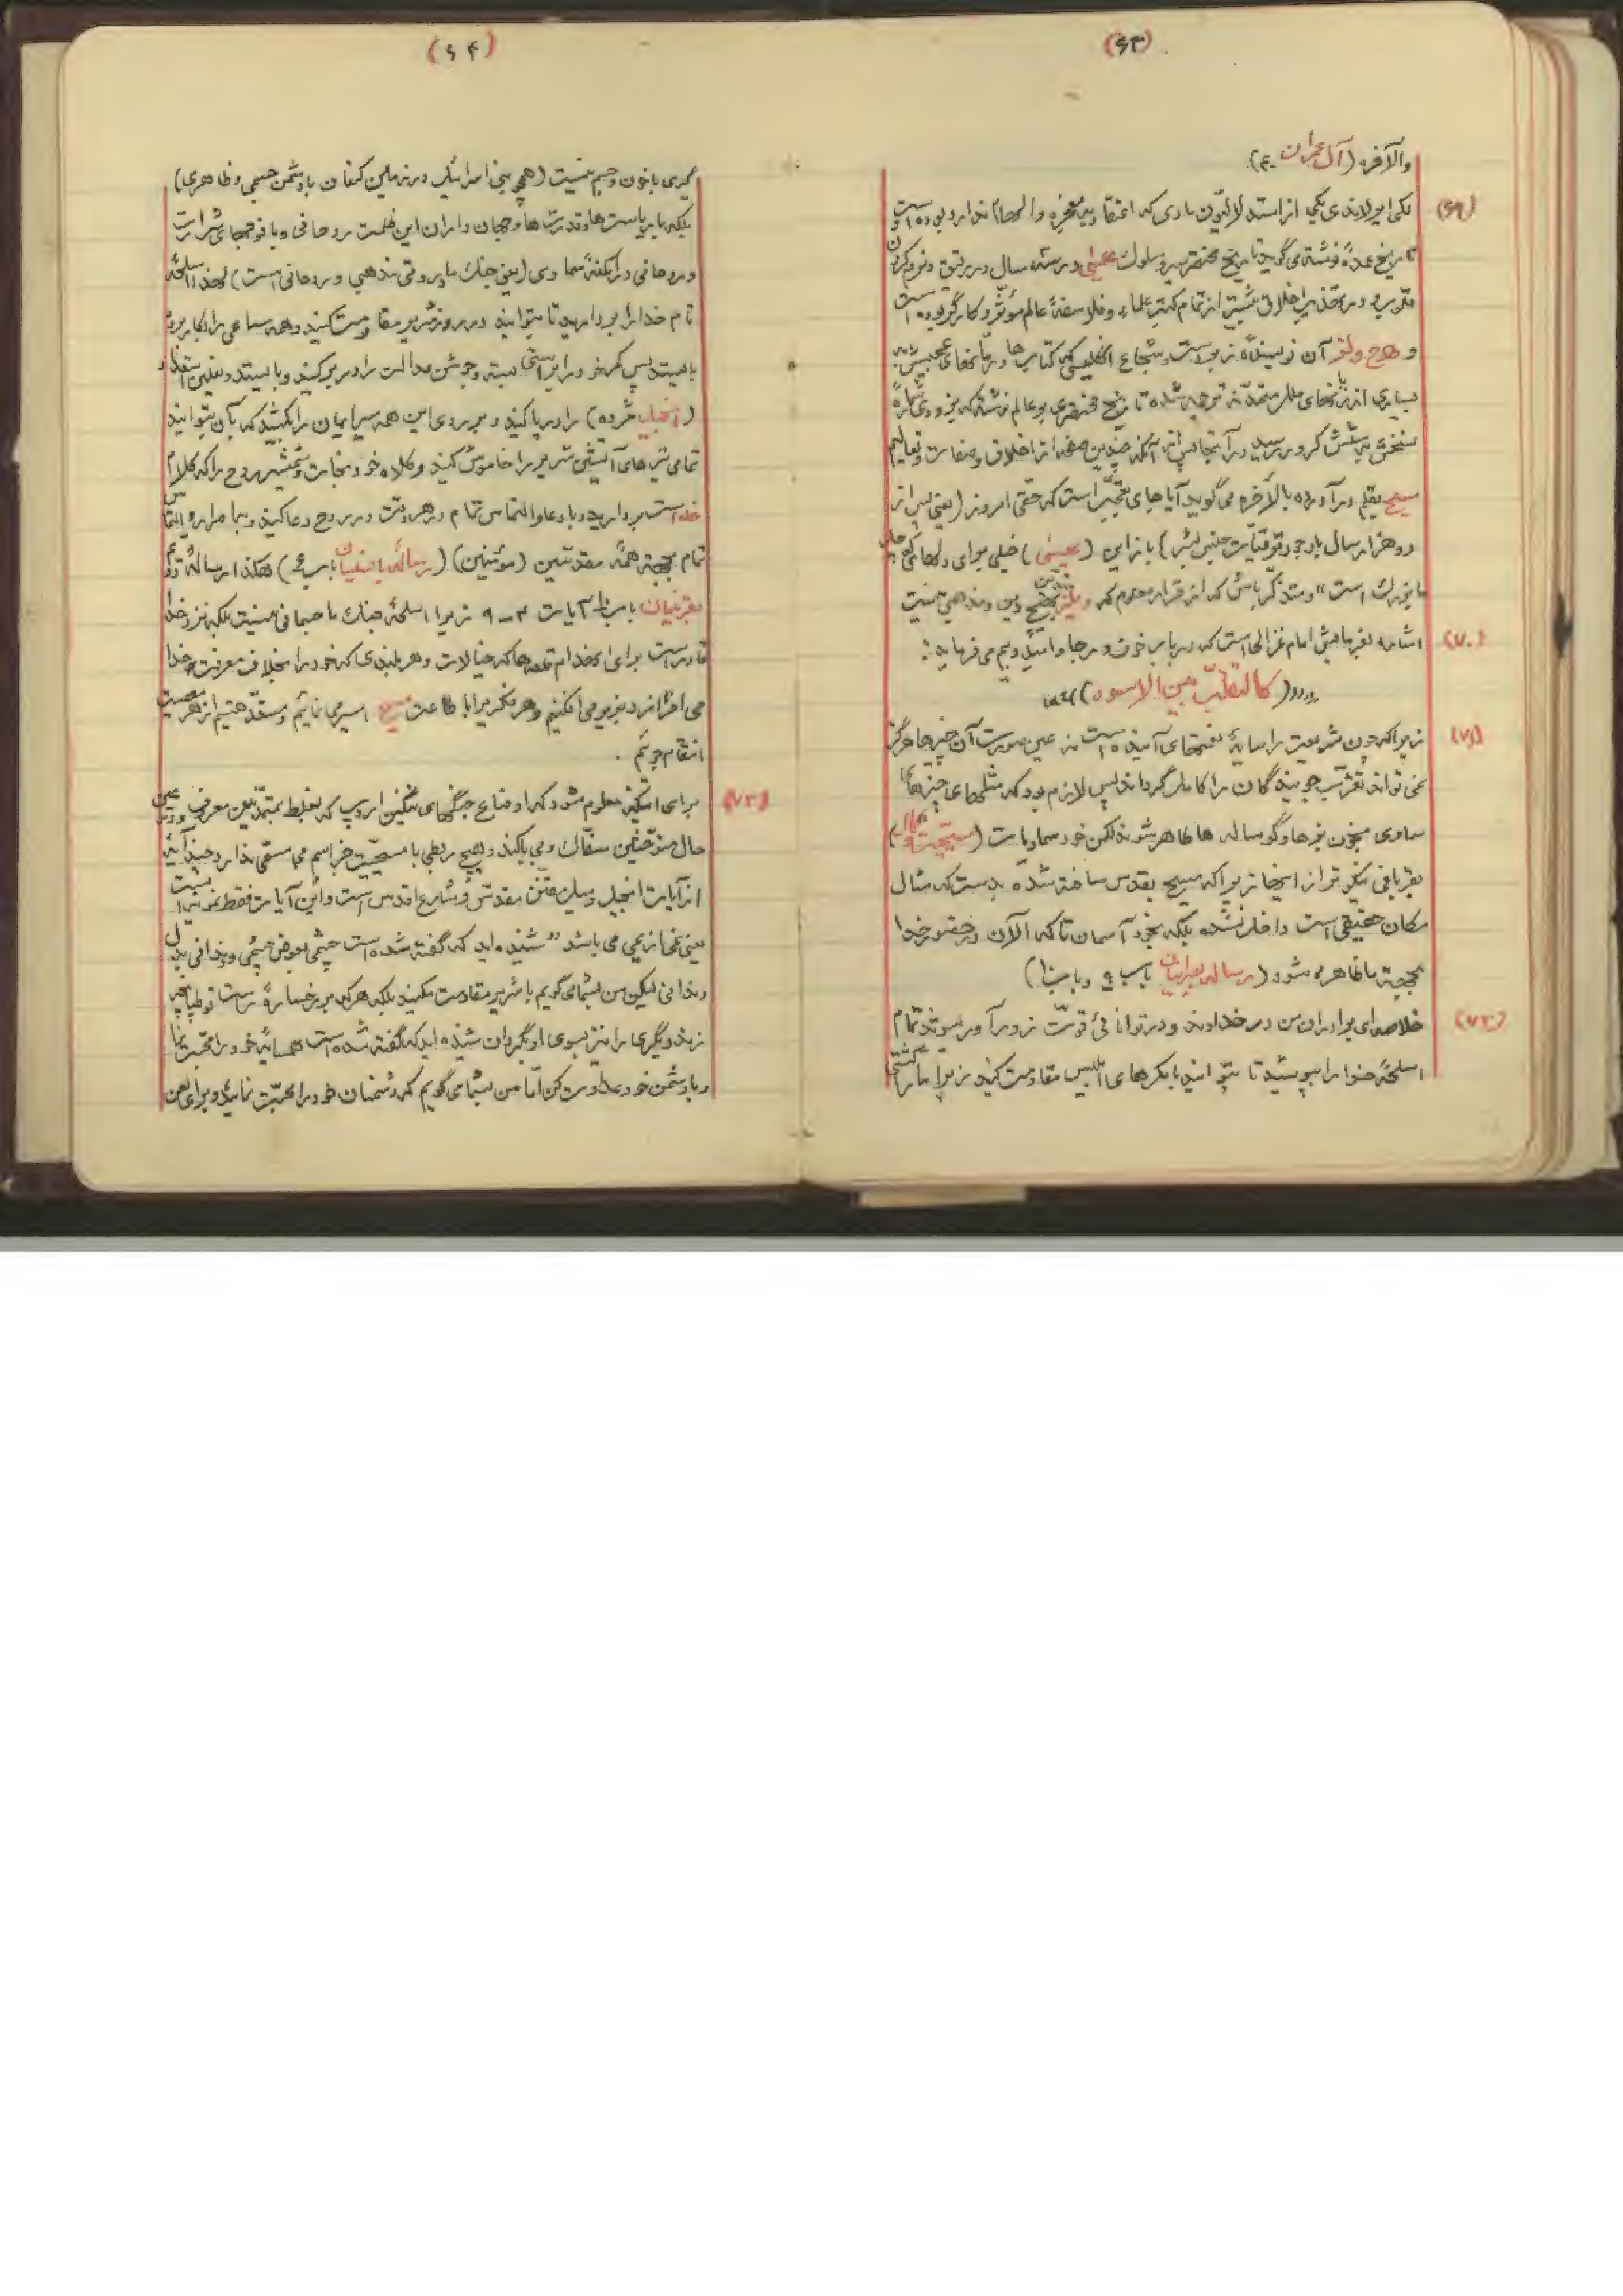 (۶۳)
والآخره (آل عمران ۴۰)
(۶۹) لکی ایرلاندی یکی از استدلالیّون مادی که اعتقاد به معجزه و الهام ندارد بوده است و
تاریخ عمدهٔ نوشته می گوید تاریخ مختصر سیر و سلوک عیسی در سه سال در رقیق و نرم کردن
قلوب و در تهذیب اخلاق بیشتر از تمام کتب علماء و فلاسفهٔ عالم مؤثر و کارگر بوده است
و هرج ولتر آن نویسندهٔ زبردست و شجاع انگلیسی که کتاب ها و رمانهای عجیبش به
بسیاری از زبانهای ملل متمدّنه ترجمه شده تاریخ مختصری بر عالم نوشته که بزودی شمارهٔ
نسخش بی شش کرور رسید در آنجا پس از آنکه چندین صفحه از اخلاق و صفات و تعالیم
مسیح بقلم درآورده بالأخره می گوید آیا جای تعجّب است که حتّی امروز (یعنی پس از
دو هزار سال با وجود ترقیّات جنس بشر) باز این (عیسی) خیلی برای دلهای کوچک
ما بزرگ است" و متذکّر باش که از قرار معلوم که ولز بهیچ دین و مذهبی نیست
(۷۰) اشاره بفرمایش امام غزالی است که در باب خوف و رجا و امید و بیم می فرماید :
(کالتطّیر بین الاسود)
(۷۱) زیرا که چون شریعت را سایهٔ نعمتهای آینده است نه عین صورت آن چیزها هرگز
نمی تواند تقرّب جویندگان را کامل گرداند پس لازم بود که مثلهای چیزهای
سماوی بخون بزها و گوساله ها طاهر شوند لکن خود سماویات (مسیحیّت و کمال)
بقربانی نیکوتر از اینها زیرا که مسیح بقدس ساخته شده بدست که مثال
مکان حقیقی است داخل نشده بلکه بخود آسمان تا که الآن در حضور خدا
بجهة ما ظاهر می شود (رساله بعبرانیان باب ۹ و باب ۱۰)
(۷۲) خلاصه ای برادران من در خداوند و در توانائی قوّت زورآور شوند تمام
اسلحهٔ خدا را بپوشید تا بتوانید با مکرهای ابلیس مقاومت کنید زیرا ما را کشتی
(۶۴)
گیری با خون و جسم نیست (همچو بنی اسرائیل در زمین کنعان با دشمن جسمی و ظاهری)
بلکه با ریاست ها و قدرت ها و جهان داران این ظلمت روحانی و با فوجهای شرارت
و روحانی در امکنهٔ سماوی (یعنی جنگ ما بروقتی مذهبی و روحانی است) لهذا اسلحهٔ
تام خدا را بردارید تا بتوانید در روز شریر مقاومت کنید و همه ساعی را بکار برده
بایستید پس کمر خود را براستی بسته و جوشن عدالت را در بر کنید و بایستید و نعلین استعداد
(انجیل مژده) را در پا کنید و بر روی این همه سپر ایمان را بکشید که بآن بتوانید
تمامی تیرهای آتشین شریر را خاموش کنید و کلاه خود نجات و شمشیر روح را که کلام
خداست بردارید و با دعا و التماس تمام در هر وقت در روح دعا کنید و با اصرار و التماس
تمام بجهة همهٔ مقدّسین (مؤمنین) (رسالهٔ بافسسیان باب ۶) هکذا رسالهٔ دوّم
بقرنتیان باب ۱۰ آیات ۴-۹ زیرا اسلحهٔ جنگ ما جسمانی نیست بلکه نزد خدا
قادر است برای انهدام قلعه ها که خیالات و هر بلندی که خود را بخلاف معرفت خدا
می افرازد بزیر می افکنیم و هر فکر را باطاعت مسیح اسیر می نمائیم و مستعدّ هستیم از هر معصیت
انتقام جوئیم .
(۷۳) برای اینکه معلوم شود که اوضاع جنگهای ننگین اروپ که بغلط بمتمدّنین معرف و در عین
حال متوحّشین سفّاک و بی باکند و هیچ ربطی با مسیحیّت جز اسم بی مسمّی ندارد چند آیه
از آیات انجیل و میل مقنّن مقدّس و شارع اقدس است و این آیات فقط نمونه است
یعنی نمی از یمی می باشد "شنیده اید که گفته شده است چشمی بعوض چشمی و دندانی بدل
دندانی لیکن من بشما می گویم با شریر مقاومت مکنید بلکه هر که بر رخسارهٔ راست تو طپانچه
زند دیگری را نیز بسوی او بگردان شنیده اید که گفته شده است همسایهٔ خود را محبّت نما
و با دشمن خود عداوت کن امّا من بشما می گویم که دشمنان خود را محبّت نمائید و برای لعن